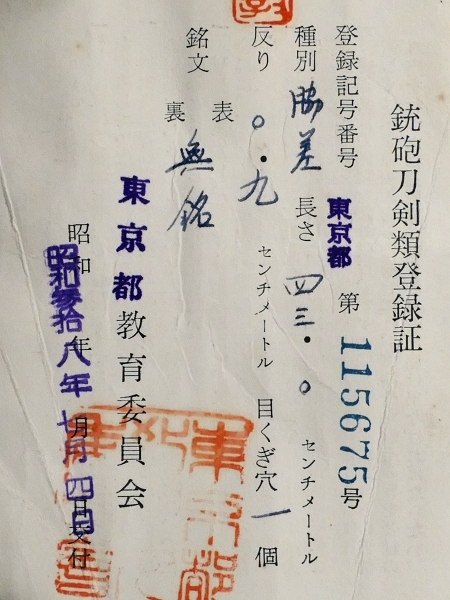 銃砲刀剣類登録証
登録記号番号 東京都 第 115675 号
種別 脇差 長さ 四三・〇 センチメートル
反り 〇・九 センチメートル 目くぎ穴 一 個
銘文 表
裏 無銘
東京都教育委員会
昭和 年 月 日交付
昭和参拾八年七月四日
東京都